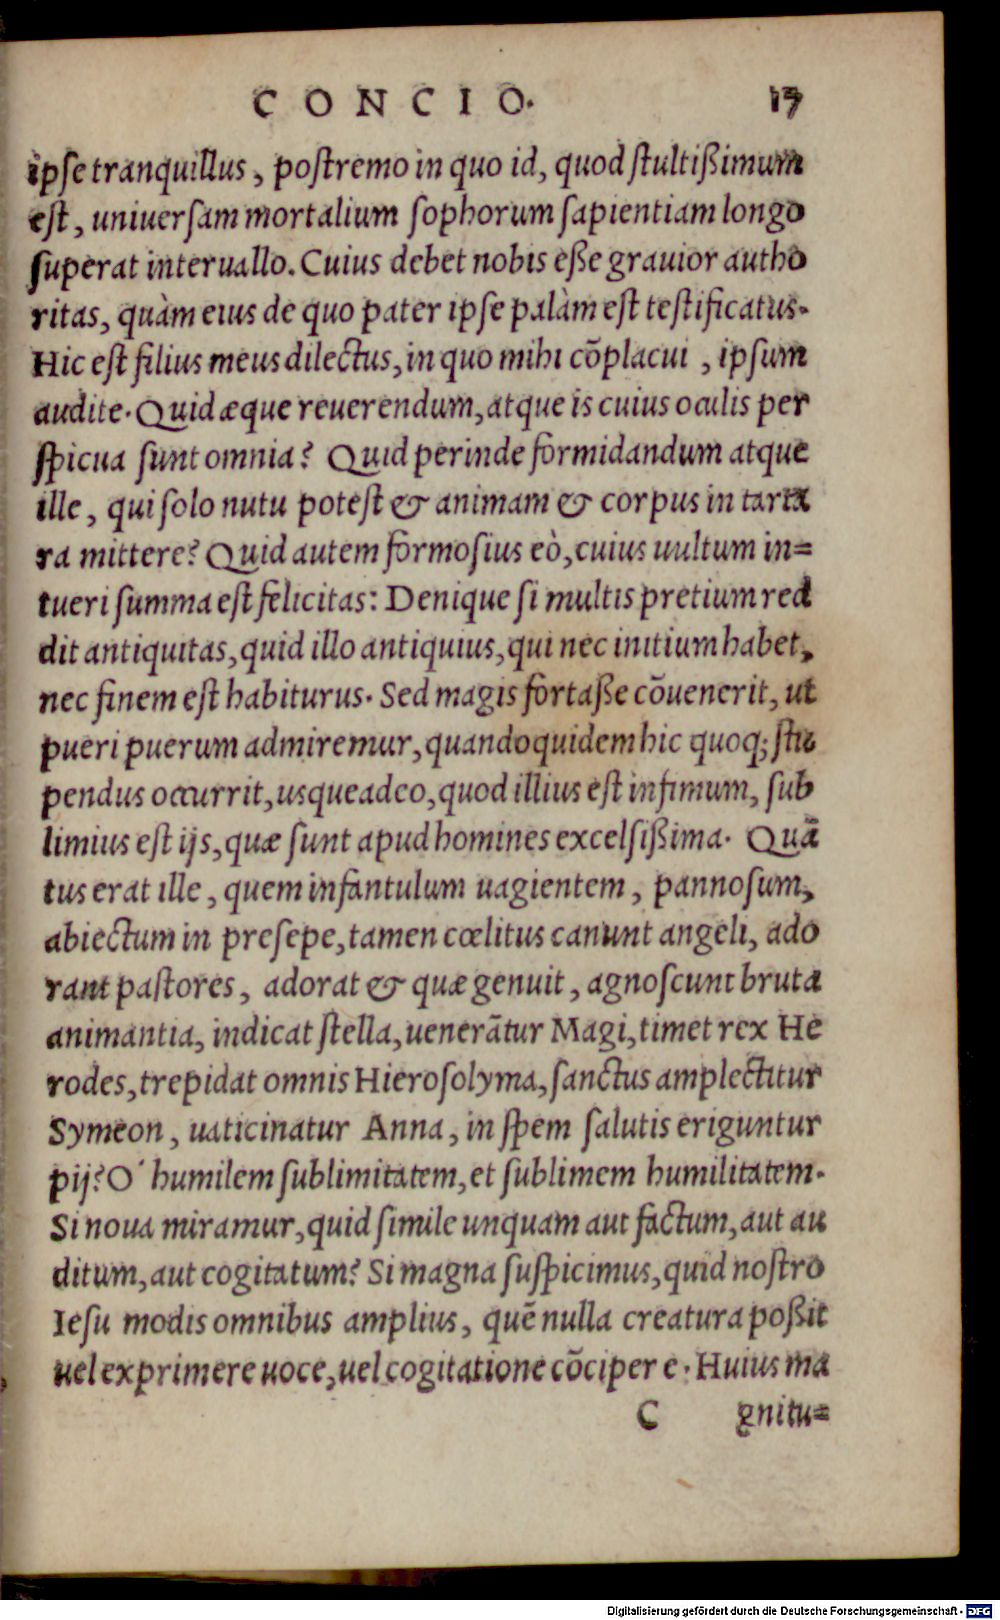 CONCIO. 17
ipſe tranquillus, poſtremo in quo id, quod ſtultißimum
eſt, uniuerſam mortalium ſophorum ſapientiam longo
ſuperat interuallo. Cuius debet nobis eße grauior autho
ritas, quàm eius de quo pater ipſe palàm eſt teſtificatus.
Hic eſt filius meus dilectus, in quo mihi cõplacui, ipſum
audite. Quid æque reuerendum, atque is cuius oculis per
ſpicua ſunt omnia? Quid perinde formidandum atque
ille, qui ſolo nutu poteſt & animam & corpus in tarta
ra mittere? Quid autem formoſius eò, cuius uultum in=
tueri ſumma eſt felicitas: Denique ſi multis pretium red
dit antiquitas, quid illo antiquius, qui nec initium habet,
nec finem eſt habiturus. Sed magis fortaße cõuenerit, ut
pueri puerum admiremur, quandoquidem hic quoq; ſtu
pendus occurrit, uſqueadeo, quod illius eſt infimum, ſub
limius eſt ijs, quæ ſunt apud homines excelſißima. Quã
tus erat ille, quem infantulum uagientem, pannoſum,
abiectum in preſepe, tamen cœlitus canunt angeli, ado
rant paſtores, adorat & quæ genuit, agnoſcunt bruta
animantia, indicat ſtella, uenerãtur Magi, timet rex He
rodes, trepidat omnis Hieroſolyma, ſanctus amplectitur
Symeon, uaticinatur Anna, in ſpem ſalutis eriguntur
pij? O' humilem ſublimitatem, et ſublimem humilitatem.
Si noua miramur, quid ſimile unquam aut factum, aut au
ditum, aut cogitatum? Si magna ſuſpicimus, quid noſtro
Ieſu modis omnibus amplius, quẽ nulla creatura poßit
uel exprimere uoce, uel cogitatione cõcipere. Huius ma
C gnitu=
Digitalisierung gefördert durch die Deutsche Forschungsgemeinschaft - DFG